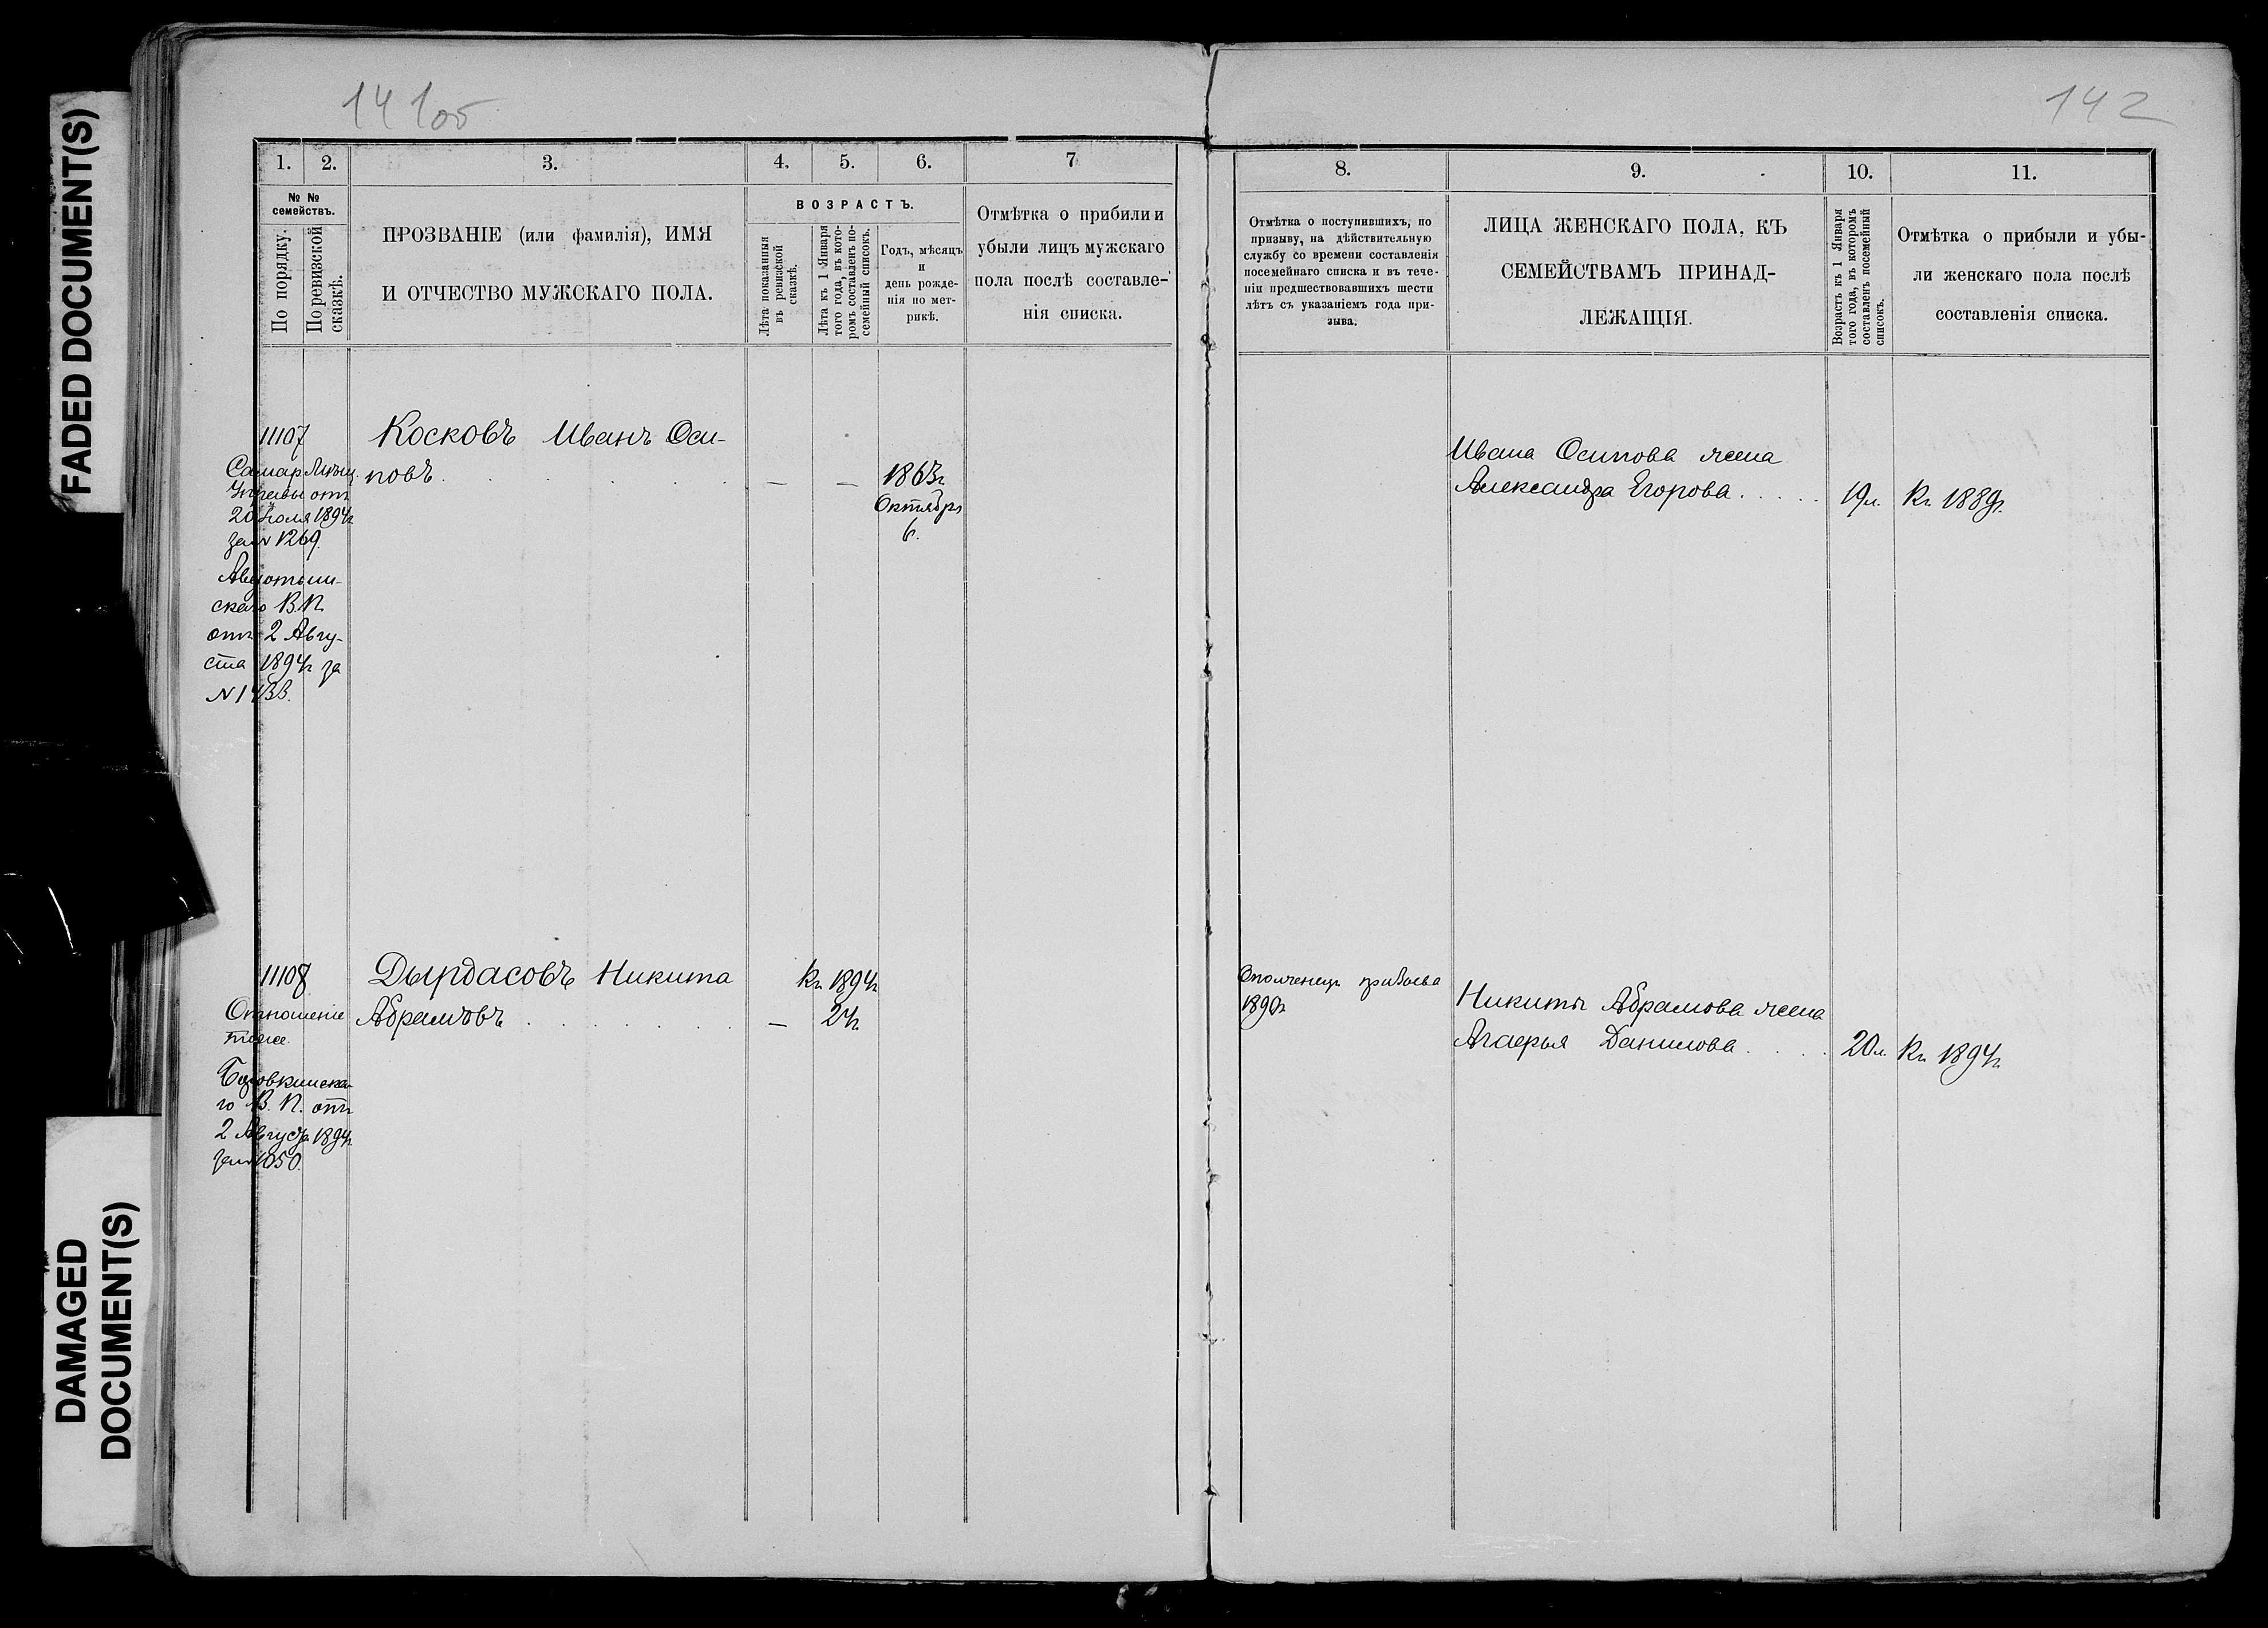 FADED DOCUMENT(S)
DAMAGED
DOCUMENT(S)
141об
1. 2. 3. 4. 5. 6. 7
№ №
семействъ.
По порядку.
По ревизской
сказкѣ.
ПРОЗВАНІЕ (или фамилія), ИМЯ
И ОТЧЕСТВО МУЖСКАГО ПОЛА.
ВОЗРАСТЪ.
Лѣта показанныя
въ ревизской
сказкѣ.
Лѣта къ 1 Января
того года, въ кото-
ромъ составленъ по-
семейный списокъ.
Годъ, мѣсяцъ
и
день рожде-
нія по мет-
рикѣ.
Отмѣтка о прибили и
убыли лицъ мужскаго
пола послѣ составле-
нія списка.
11107
Косковъ Иванъ Оси-
повъ
— — 1863г
Октября
6.
Самар. Мѣщ.
Управы отъ
20 Іюля 1894г
за № 1269.
скаго В.П.
отъ 2 Авгу-
ста 1894г за
№ 1433.
11108
Дырдасовъ Никита
Абрамовъ
Къ 1894г
— 24г
Отношеніе
тоже
го В. П. отъ
2 Августа 1894г
за № 1050.
142
8. 9. 10. 11.
Отмѣтка о поступившихъ, по
призыву, на дѣйствительную
службу со времени составленія
посемейнаго списка и въ тече-
ніи предшествовавшихъ шести
лѣтъ съ указаніемъ года при-
зыва.
ЛИЦА ЖЕНСКАГО ПОЛА, КЪ
СЕМЕЙСТВАМЪ ПРИНАД-
ЛЕЖАЩІЯ.
Возрастъ къ 1 Января
того года, въ которомъ
составленъ посемейный
списокъ.
Отмѣтка о прибыли и убы-
ли женскаго пола послѣ
составленія списка.
Ивана Осипова жена
Александра Егорова 19л. Къ 1889г.
Ополченецъ призыва
1890г
Никиты Абрамова жена
Агафья Данилова 20л. Къ 1894г.